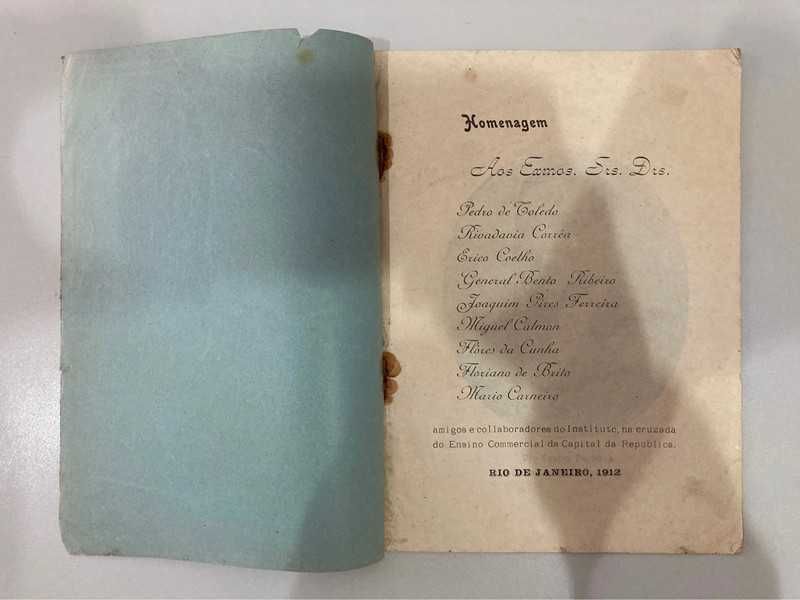 Homenagem
Aos Exmos. Srs. Drs.
Pedro de Toledo
Rivadavia Corrêa
Erico Coelho
General Bento Ribeiro
Joaquim Pires Ferreira
Miguel Calmon
Flôres da Cunha
Floriano de Brito
Mario Carneiro
amigos e collaboradores do Instituto, na cruzada
do Ensino Commercial da Capital da Republica.
RIO DE JANEIRO, 1912